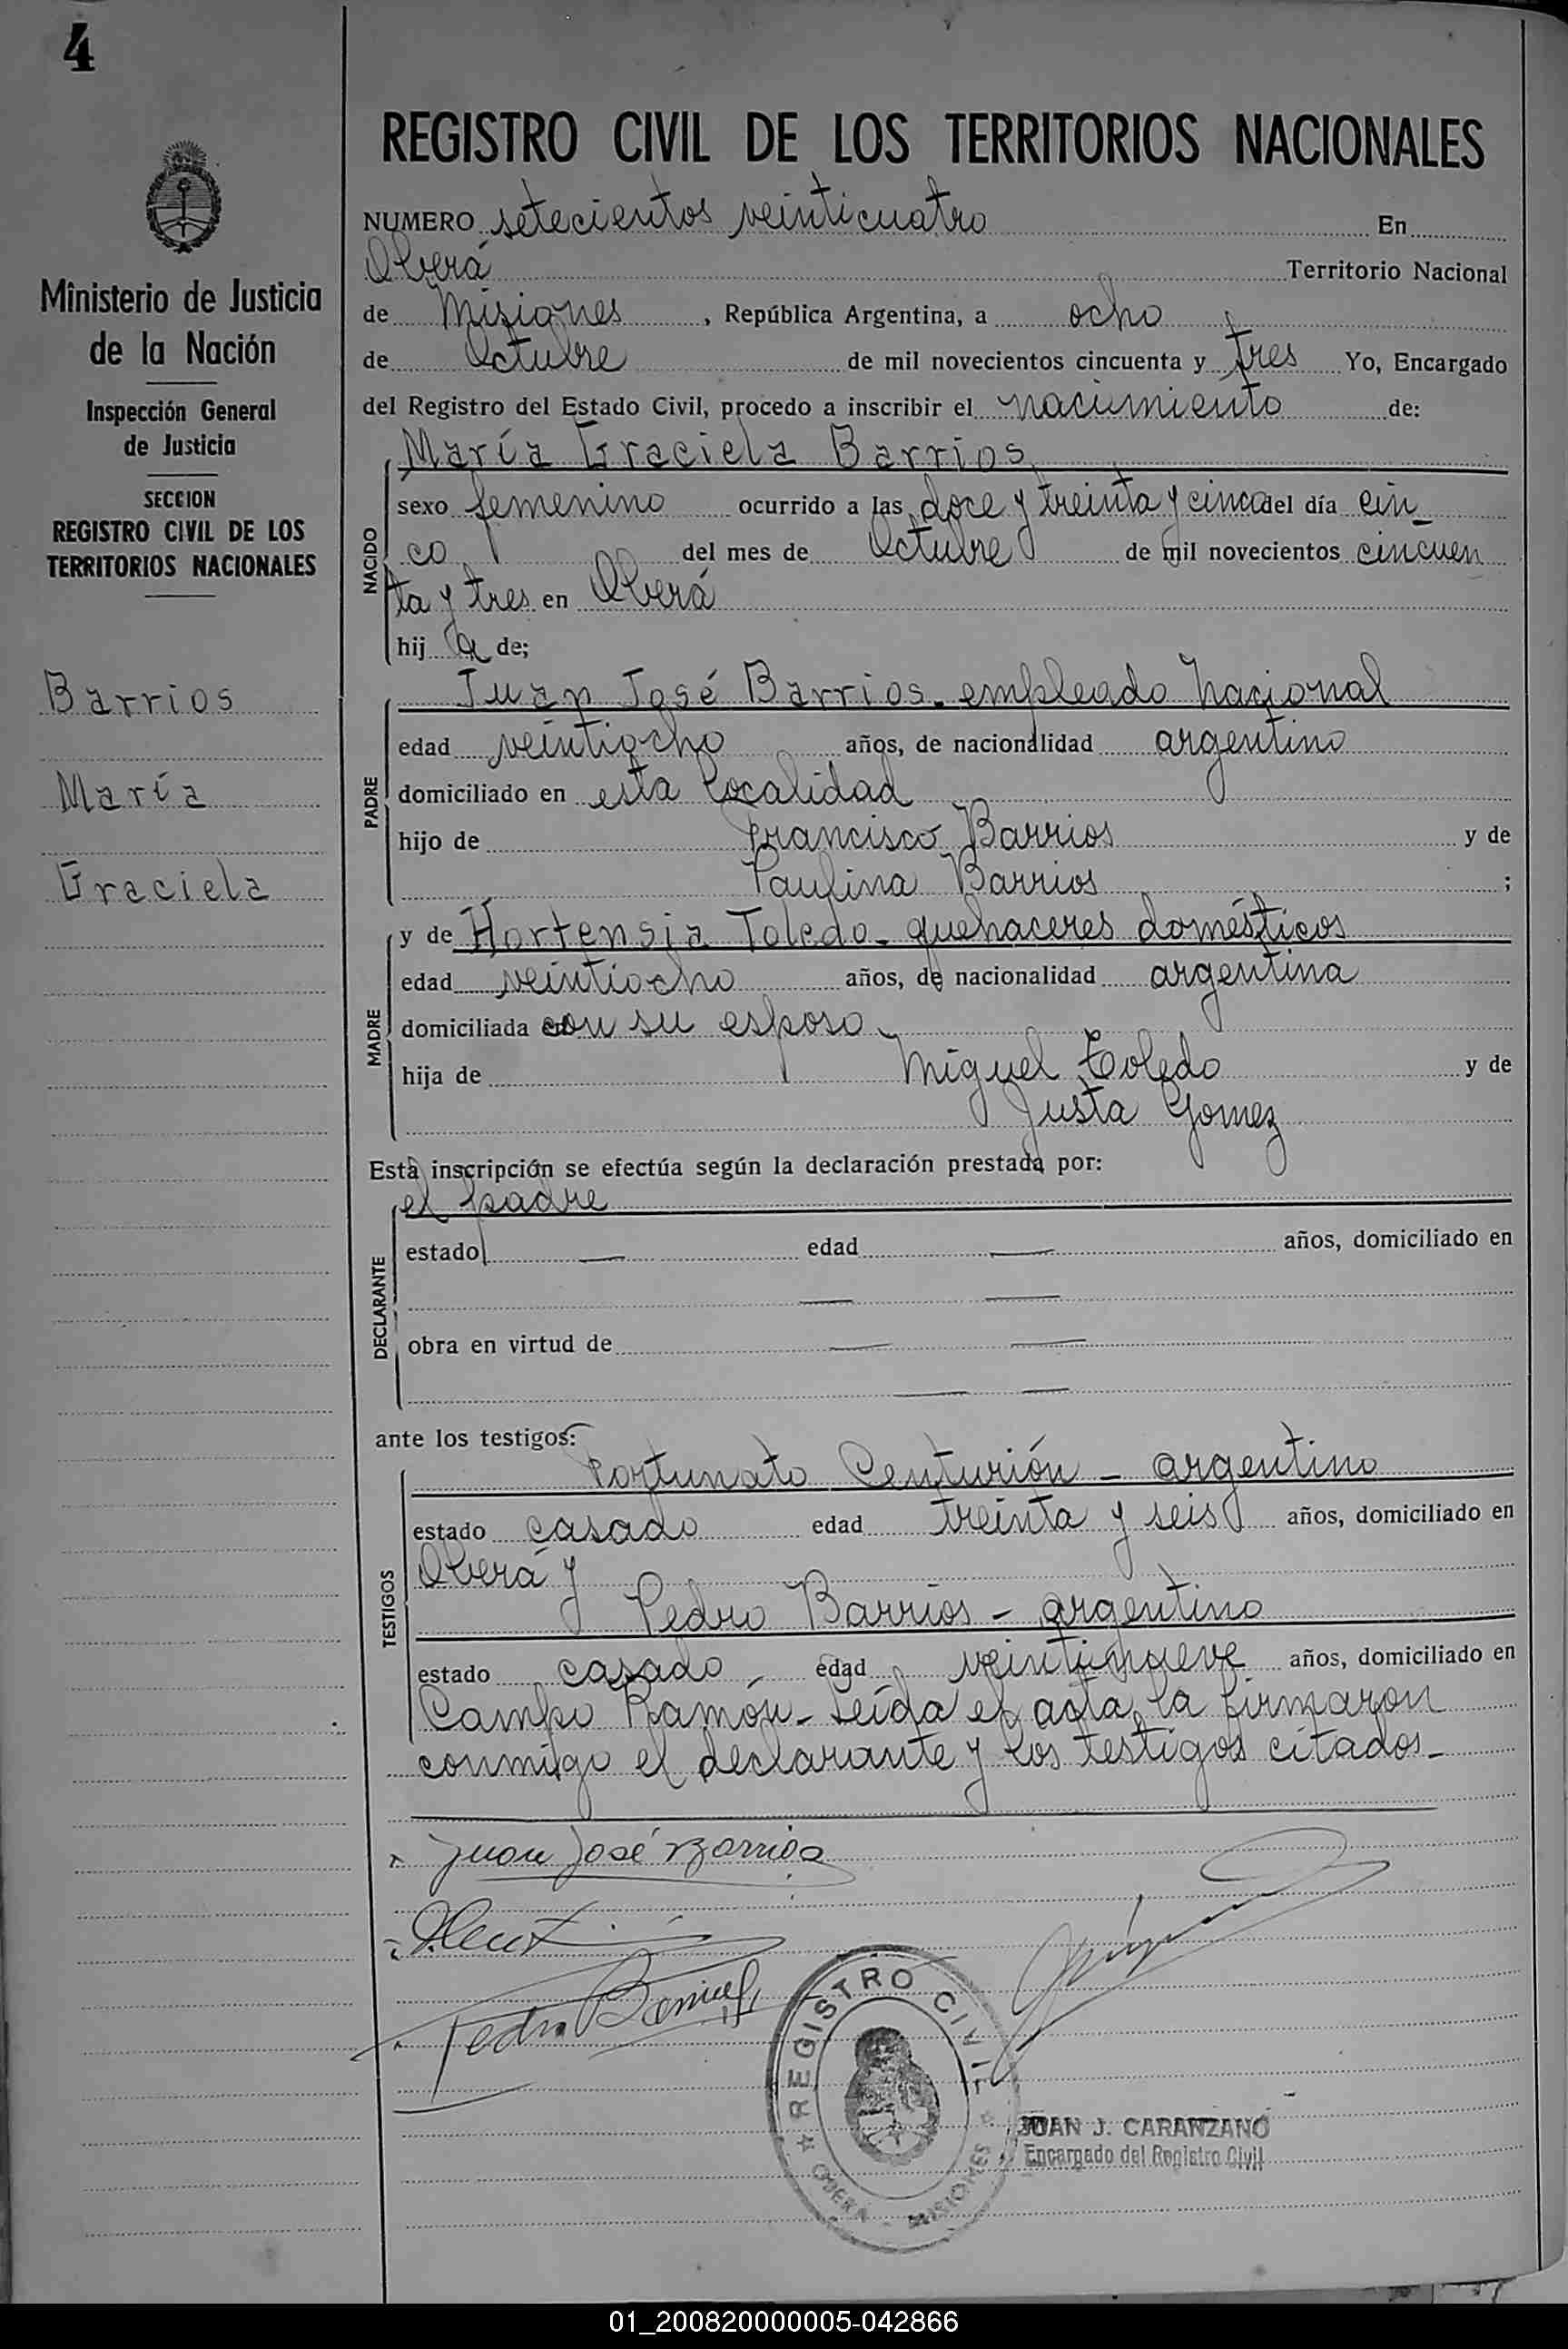 4
Ministerio de Justicia
de la Nación
Inspección General
de Justicia
SECCION
REGISTRO CIVIL DE LOS
TERRITORIOS NACIONALES
Barrios
María
Graciela
REGISTRO CIVIL DE LOS TERRITORIOS NACIONALES
NUMERO setecientos veinticuatro En
Oberá Territorio Nacional
de Misiones, República Argentina, a ocho
de Octubre de mil novecientos cincuenta y tres Yo, Encargado
del Registro del Estado Civil, procedo a inscribir el nacimiento de:
María Graciela Barrios
NACIDO
sexo femenino ocurrido a las doce y treinta y cinco del día cin_
co del mes de Octubre de mil novecientos cincuen
ta y tres en Oberá
hij a de;
Juan José Barrios. empleado Nacional
PADRE
edad veintiocho años, de nacionalidad argentino
domiciliado en esta localidad
hijo de Francisco Barrios y de
Paulina Barrios ;
y de Hortensia Toledo - quehaceres domésticos
MADRE
edad veintiocho años, de nacionalidad argentina
domiciliada con su esposo
hija de Miguel Toledo y de
Justa Gomez
Esta inscripción se efectúa según la declaración prestada por:
el padre
DECLARANTE
estado — edad — años, domiciliado en
— —
obra en virtud de — —
— —
ante los testigos:
Fortunato Centurión - argentino
TESTIGOS
estado casado edad treinta y seis años, domiciliado en
Oberá y
Pedro Barrios - argentino
estado casado edad veintinueve años, domiciliado en
Campo Ramón - Leída el acta, la firmaron
conmigo el declarante y los testigos citados -
Juan José Barrios
Pedro Barrios
REGISTRO CIVIL
OBERA - MISIONES
JUAN J. CARANZANO
Encargado del Registro Civil
01_200820000005-042866